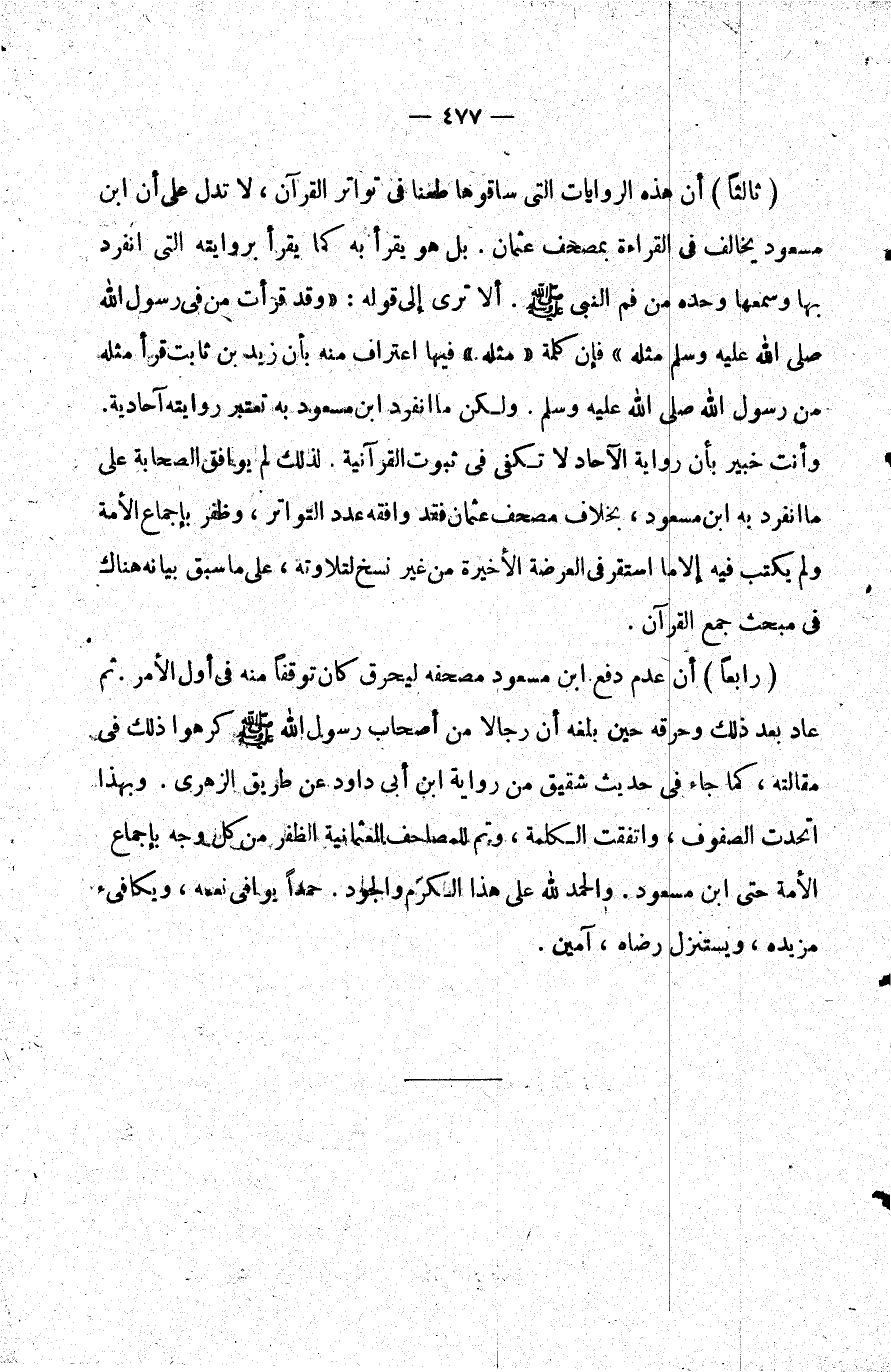 — ٤٧٧ —
( ثالثاً ) أن هذه الروايات التى ساقوها طعنا فى تواتر القرآن ، لا تدل على أن ابن
مسعود يخالف فى القراءة بمصحف عثمان . بل هو يقرأ به كما يقرأ بروايته التى انفرد
بها وسمعها وحده من فم النبى ﷺ . ألا ترى إلى قوله : «وقد قرأت من فى رسول الله
صلى الله عليه وسلم مثله » فإن كلمة « مثله » فيها اعتراف منه بأن زيد بن ثابت قرأ مثله
من رسول الله صلى الله عليه وسلم . ولكن ما انفرد ابن مسعود به تعتبر روايته آحادية.
وأنت خبير بأن رواية الآحاد لا تكفى فى ثبوت القرآنية . لذلك لم يوافق الصحابة على
ما انفرد به ابن مسعود ، بخلاف مصحف عثمان فقد وافقه عدد التواتر ، وظفر بإجماع الأمة
ولم يكتب فيه إلا ما استقر فى العرضة الأخيرة من غير نسخ لتلاوته ، على ما سبق بيانه هناك
فى مبحث جمع القرآن .
( رابعاً ) أن عدم دفع ابن مسعود مصحفه ليحرق كان توقفاً منه فى أول الأمر . ثم
عاد بعد ذلك وحرقه حين بلغه أن رجالا من أصحاب رسول الله ﷺ كرهوا ذلك فى
مقالته ، كما جاء فى حديث شقيق من رواية ابن أبى داود عن طريق الزهرى . وبهذا
اتحدت الصفوف ، واتفقت الكلمة ، وتم للمصاحف العثمانية الظفر من كل وجه بإجماع
الأمة حتى ابن مسعود . والحمد لله على هذا الكرَم والجود . حمداً يوافى نعمه ، ويكافىء
مزيده ، ويستنزل رضاه ، آمين .